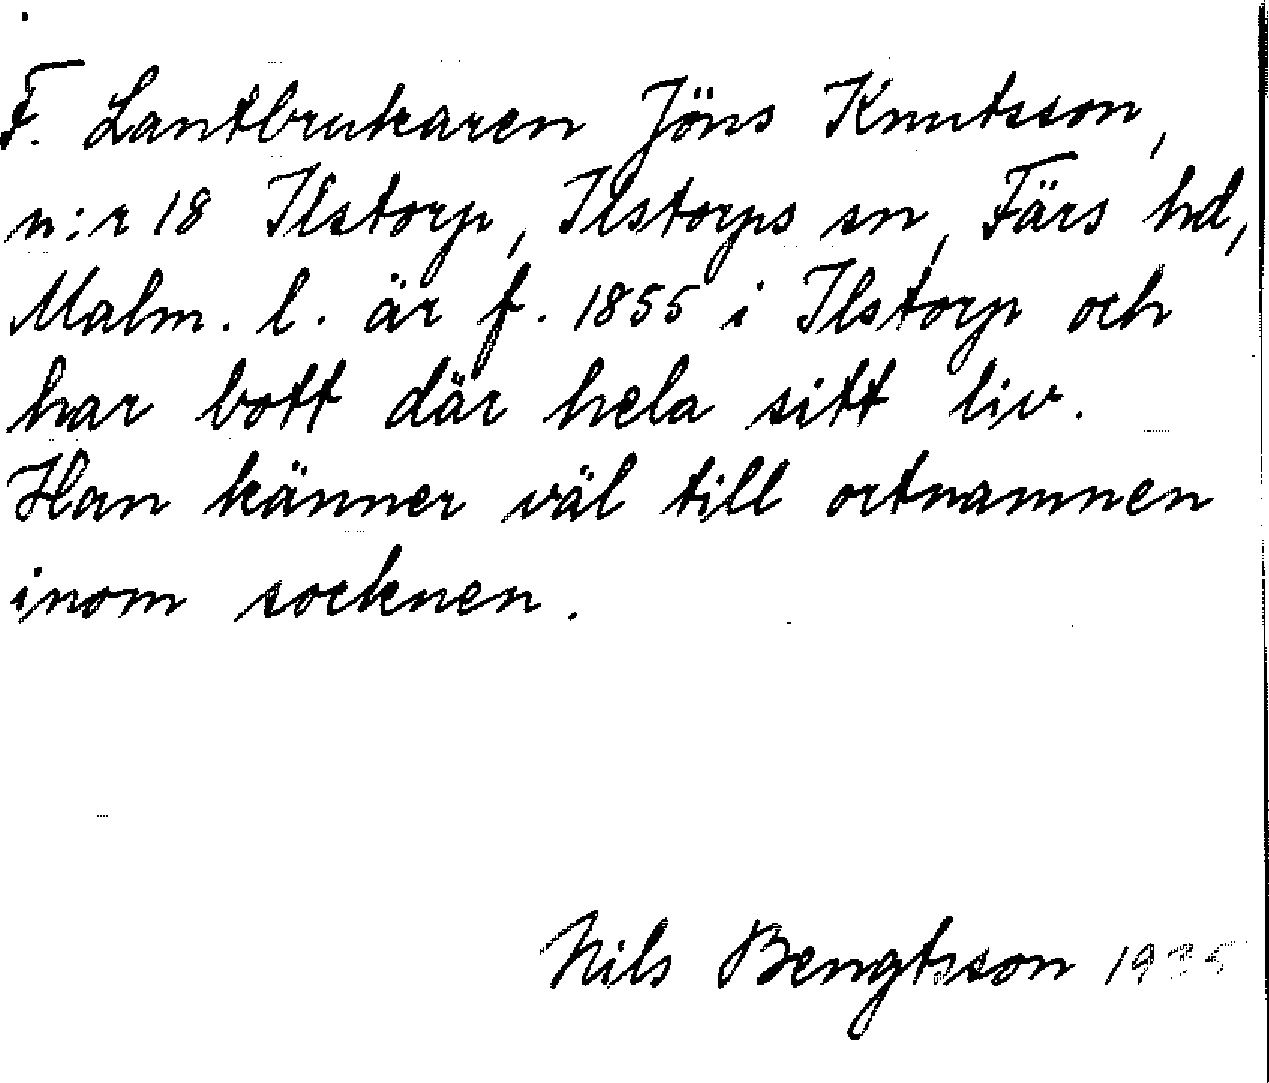 F. Lantbrukaren Jöns Knutsson,
n:r 18 Ilstorp, Ilstorps sn, Färs hd,
Malm. l. är f. 1855 i Ilstorp och
har bott där hela sitt liv.
Han känner väl till ortnamnen
inom socknen.
Nils Bengtsson 1935